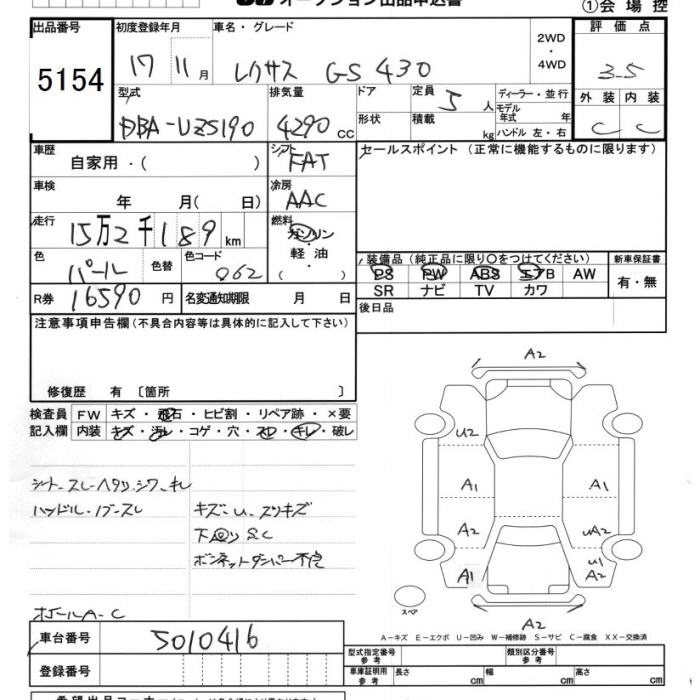 オークション出品申込書 ①会場控
出品番号 初度登録年月 車名・グレード 2WD・4WD 評価点
5154 17 11月 レクサス GS 430 3-5
型式 排気量 ドア 定員 5人 ディーラー・並行 外装 内装
DBA-UZS190 4290cc 形状 積載 kg モデル年式 年 ハンドル 左・右 C C
車歴 シフト セールスポイント(正常に機能するものに限ります)
自家用・( ) FAT
車検 冷房
年 月( 日) AAC
走行 燃料
15万2千189km ガソリン・軽油・( )
色 色替 色コード 装備品(純正品に限り○をつけてください) 新車保証書
パール 062 PS PW ABS エアB AW 有・無
SR ナビ TV カワ
R券 16590円 名変通知期限 月 日 後日品
注意事項申告欄(不具合内容等は具体的に記入して下さい)
修復歴 有〔箇所 〕
検査員 FW キズ・飛石・ヒビ割・リペア跡・×要
記入欄 内装 キズ・汚レ・コゲ・穴・スレ・キレ・破レ
シート-スレ-ヘタリ.シワ.キレ
ハンドル・ノブ-スレ キズ-U-スリキズ
下回り S.C
ボンネットダンパー不良
ホイールA-C
A2
U2
A1 A1
A2 UA2
A1 U1 A2
A2
スペア
A-キズ E-エクボ U-凹み W-補修跡 S-サビ C-腐食 XX-交換済
車台番号 5010416 型式指定番号 参考 類別区分番号 参考
登録番号 車庫証明用 参考 長さ cm 幅 cm 高さ cm
希望出品コーナー